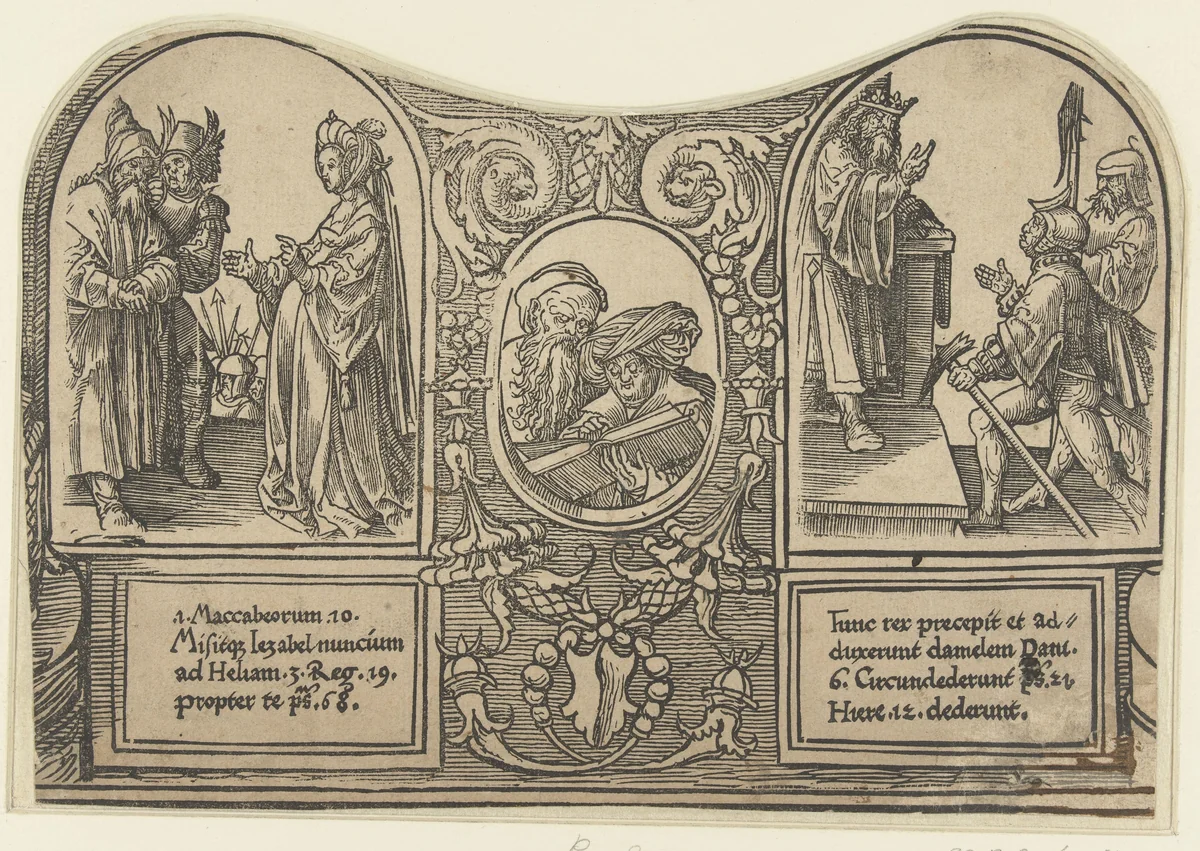 .1. Maccabeorum .10.
Misitq3 Iezabel nuncium
ad Heliam. 3. Reg. 19.
propter te ps. 68.
Tunc rex precepit et ad〃
duxerunt damelem Dani.
6. Circundederunt ps. 21.
Hiere .12. dederunt.